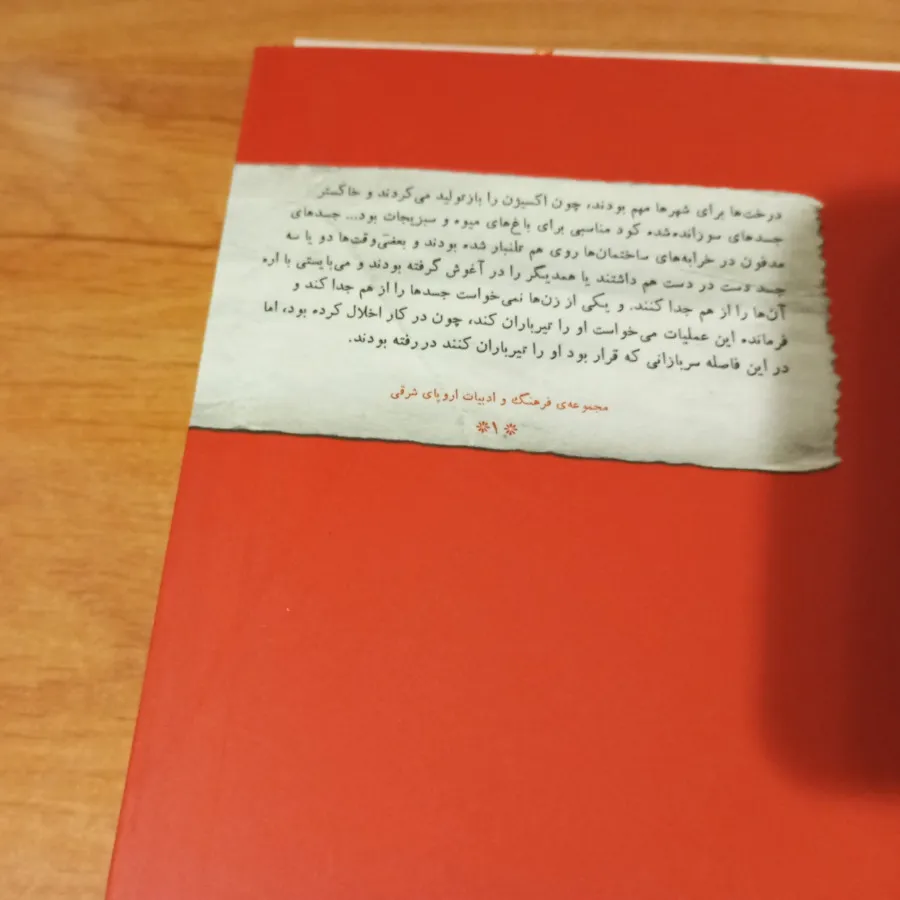 درخت‌ها برای شهرها مهم بودند، چون اکسیژن را بازتولید می‌کردند و خاکستر
جسدهای سوزانده‌شده کود مناسبی برای باغ‌های میوه و سبزیجات بود... جسدهای
مدفون در خرابه‌های ساختمان‌ها روی هم تلنبار شده بودند و بعضی‌وقت‌ها دو یا سه
جسد دست در دست هم داشتند یا همدیگر را در آغوش گرفته بودند و می‌بایستی با اره
آن‌ها را از هم جدا کنند. و یکی از زن‌ها نمی‌خواست جسدها را از هم جدا کند و
فرمانده این عملیات می‌خواست او را تیرباران کند، چون در کار اخلال کرده بود، اما
در این فاصله سربازانی که قرار بود او را تیرباران کنند در رفته بودند.
مجموعه‌ی فرهنگ و ادبیات اروپای شرقی
۱